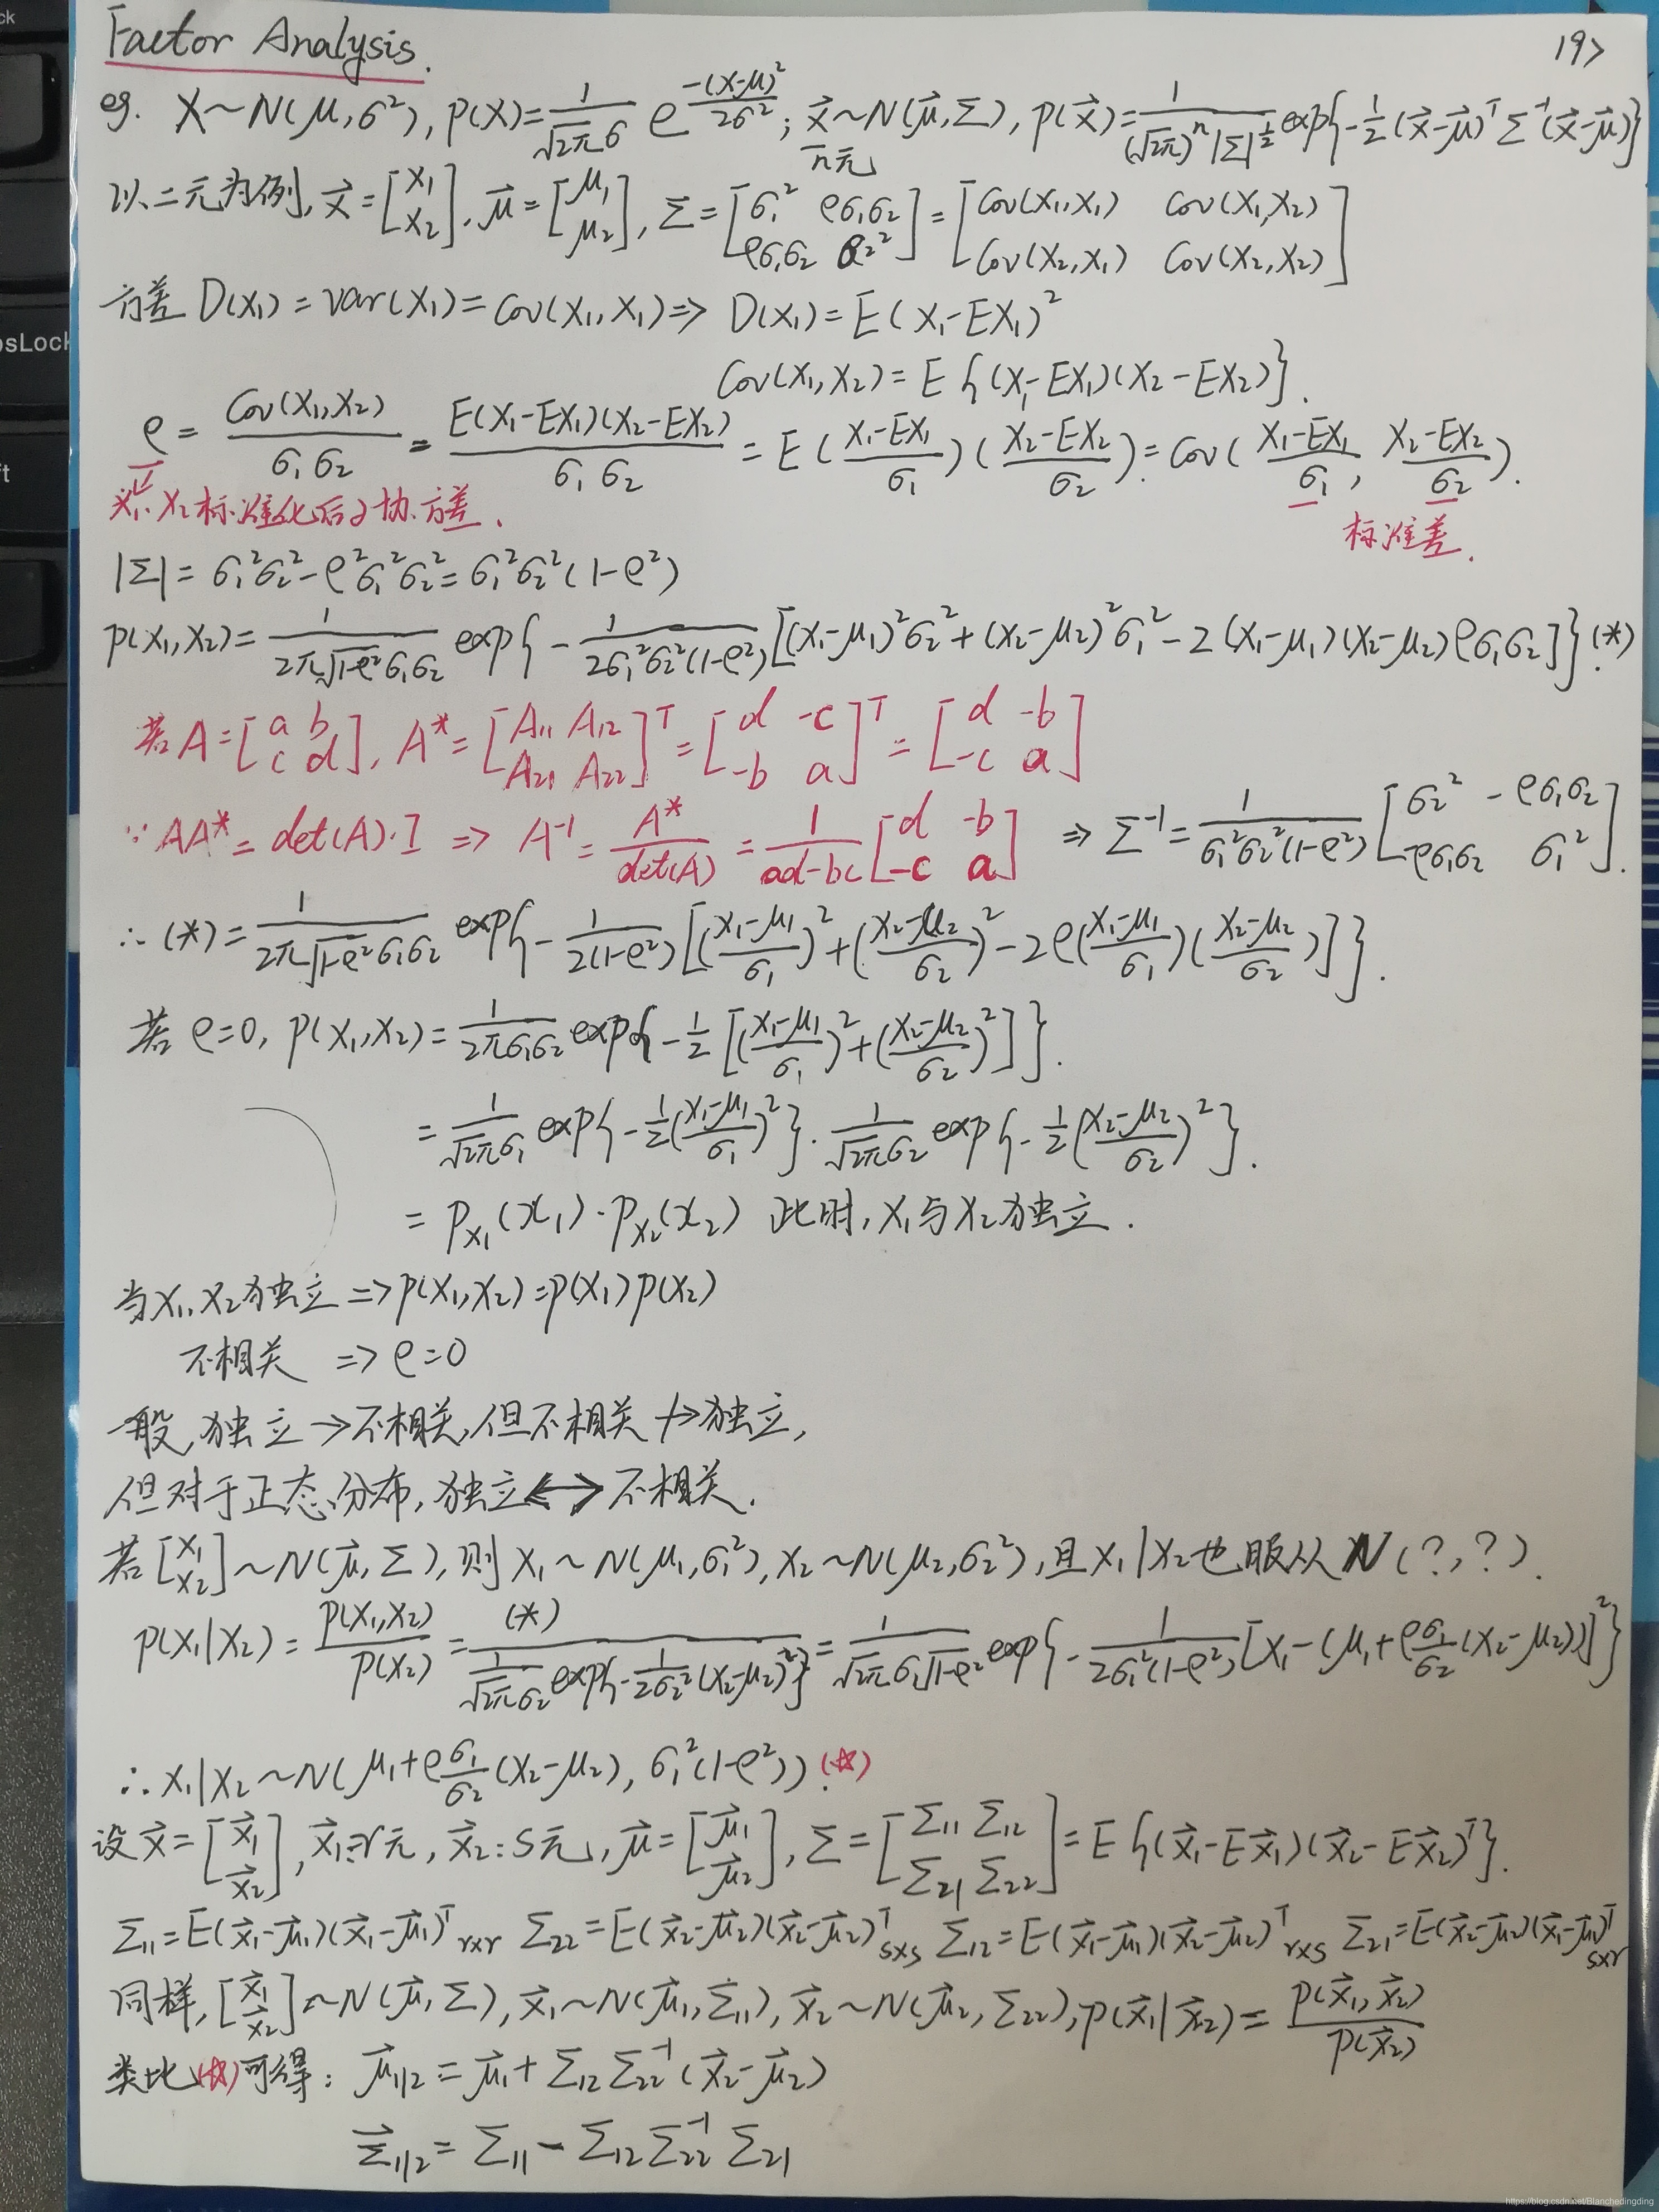 Factor Analysis.
19>
eg. X~N(μ,σ²), p(x)=1/(√2π σ) e^(-(x-μ)²/2σ²); x⃗~N(μ⃗,Σ), p(x⃗)=1/((√2π)ⁿ|Σ|^½) exp{-½(x⃗-μ⃗)ᵀΣ⁻¹(x⃗-μ⃗)}
n元
以二元为例, x⃗=[x₁ x₂], μ⃗=[μ₁ μ₂], Σ=[σ₁² ρσ₁σ₂ ρσ₁σ₂ σ₂²]=[Cov(x₁,x₁) Cov(x₁,x₂) Cov(x₂,x₁) Cov(x₂,x₂)]
方差 D(x₁)=var(x₁)=Cov(x₁,x₁)⇒ D(x₁)=E(x₁-EX₁)²
Cov(x₁,x₂)=E{(x₁-EX₁)(x₂-EX₂)}.
ρ=Cov(x₁,x₂)/σ₁σ₂=E(x₁-EX₁)(x₂-EX₂)/σ₁σ₂=E((x₁-EX₁)/σ₁)((x₂-EX₂)/σ₂)=Cov((x₁-EX₁)/σ₁, (x₂-EX₂)/σ₂).
x₁.x₂标准化后之协方差.
标准差.
|Σ|=σ₁²σ₂²-ρ²σ₁²σ₂²=σ₁²σ₂²(1-ρ²)
p(x₁,x₂)=1/(2π√1-ρ² σ₁σ₂) exp{-1/(2σ₁²σ₂²(1-ρ²))[(x₁-μ₁)²σ₂²+(x₂-μ₂)²σ₁²-2(x₁-μ₁)(x₂-μ₂)ρσ₁σ₂]}.(*)
若A=[a b c d], A*=[A₁₁ A₁₂ A₂₁ A₂₂]ᵀ=[d -c -b a]ᵀ=[d -b -c a]
∵AA*=det(A)·I ⇒ A⁻¹=A*/det(A)=1/(ad-bc)[d -b -c a] ⇒ Σ⁻¹=1/(σ₁²σ₂²(1-ρ²))[σ₂² -ρσ₁σ₂ -ρσ₁σ₂ σ₁²].
∴(*)=1/(2π√1-ρ² σ₁σ₂) exp{-1/(2(1-ρ²))[((x₁-μ₁)/σ₁)²+((x₂-μ₂)/σ₂)²-2ρ((x₁-μ₁)/σ₁)((x₂-μ₂)/σ₂)]}.
若 ρ=0, p(x₁,x₂)=1/(2πσ₁σ₂) exp{-½[((x₁-μ₁)/σ₁)²+((x₂-μ₂)/σ₂)²]}.
=1/(√2π σ₁) exp{-½((x₁-μ₁)/σ₁)²}·1/(√2π σ₂) exp{-½((x₂-μ₂)/σ₂)²}.
=p_x₁(x₁)·p_x₂(x₂) 此时, x₁与x₂独立.
当x₁.x₂独立⇒p(x₁,x₂)=p(x₁)p(x₂)
不相关 ⇒ρ=0
一般,独立→不相关,但不相关↛独立,
但对于正态分布,独立↔不相关.
若[x₁ x₂]~N(μ⃗,Σ),则 x₁~N(μ₁,σ₁²), x₂~N(μ₂,σ₂²),且x₁|x₂也服从N(?,?).
p(x₁|x₂)=p(x₁,x₂)/p(x₂)=(*)/(1/(√2π σ₂) exp{-1/(2σ₂²)(x₂-μ₂)²})=1/(√2π σ₁√1-ρ²) exp{-1/(2σ₁²(1-ρ²))[x₁-(μ₁+ρ(σ₁/σ₂)(x₂-μ₂))]²}
∴x₁|x₂~N(μ₁+ρ(σ₁/σ₂)(x₂-μ₂), σ₁²(1-ρ²)).(☆)
设 x⃗=[x⃗₁ x⃗₂], x⃗₁:r元, x⃗₂:s元, μ⃗=[μ⃗₁ μ⃗₂], Σ=[Σ₁₁ Σ₁₂ Σ₂₁ Σ₂₂]=E{(x⃗₁-Ex⃗₁)(x⃗₂-Ex⃗₂)ᵀ}.
Σ₁₁=E(x⃗₁-μ⃗₁)(x⃗₁-μ⃗₁)ᵀ r×r Σ₂₂=E(x⃗₂-μ⃗₂)(x⃗₂-μ⃗₂)ᵀ s×s Σ₁₂=E(x⃗₁-μ⃗₁)(x⃗₂-μ⃗₂)ᵀ r×s Σ₂₁=E(x⃗₂-μ⃗₂)(x⃗₁-μ⃗₁)ᵀ s×r
同样, [x⃗₁ x⃗₂]~N(μ⃗,Σ), x⃗₁~N(μ⃗₁,Σ₁₁), x⃗₂~N(μ⃗₂,Σ₂₂), p(x⃗₁|x⃗₂)=p(x⃗₁,x⃗₂)/p(x⃗₂)
类比(☆)可得: μ⃗₁|₂=μ⃗₁+Σ₁₂Σ₂₂⁻¹(x⃗₂-μ⃗₂)
Σ⃗₁|₂=Σ₁₁-Σ₁₂Σ₂₂⁻¹Σ₂₁
https://blog.csdn.net/Blanchedingding